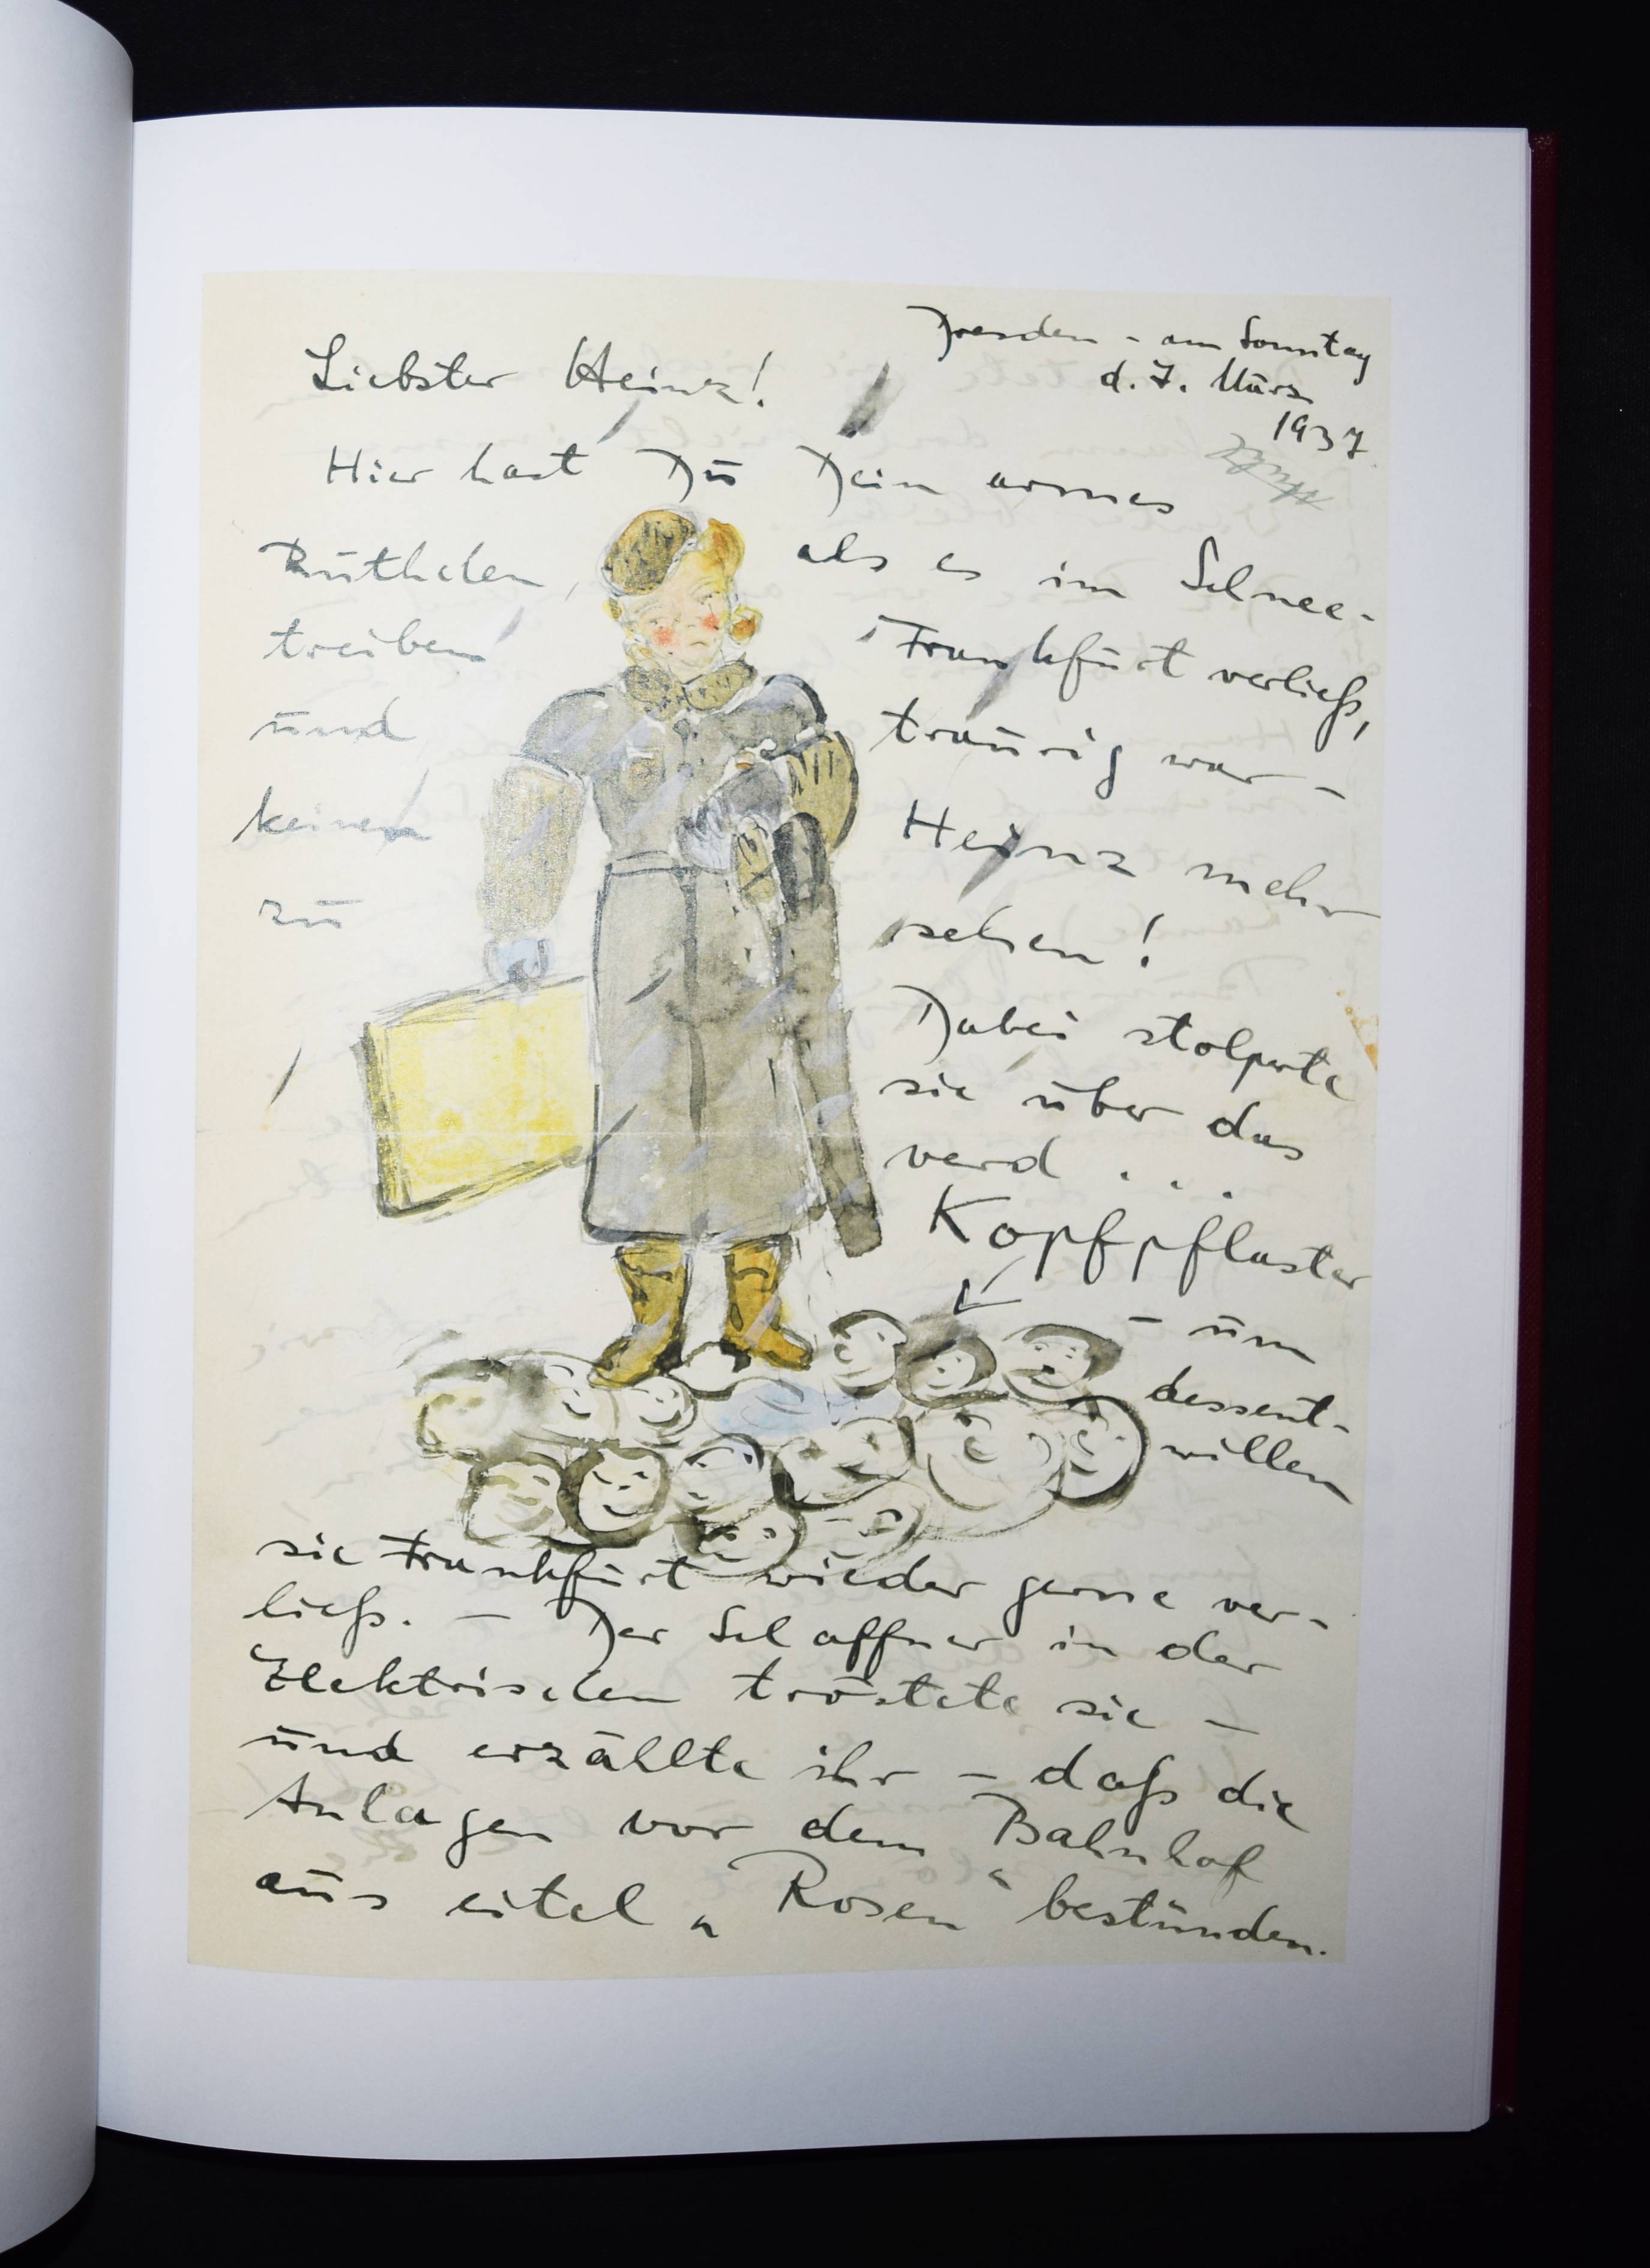 Dresden – am Sonntag
d. 7. März
1937
Liebster Heinz!
Hier hast Du Dein armes
Rüthchen, als es im Schnee-
treiben Frankfurt verließ,
und traurig war –
keinen Heinz mehr
zu sehen!
Dabei stolperte
sie über das
verd . . .
Kopfpflaster
– um
dessent-
willen
sie Frankfurt wieder gerne ver-
ließ. – Der Schaffner in der
Elektrischen tröstete sie –
und erzählte ihr – daß die
Anlagen vor dem Bahnhof
aus eitel „Rosen“ bestünden.